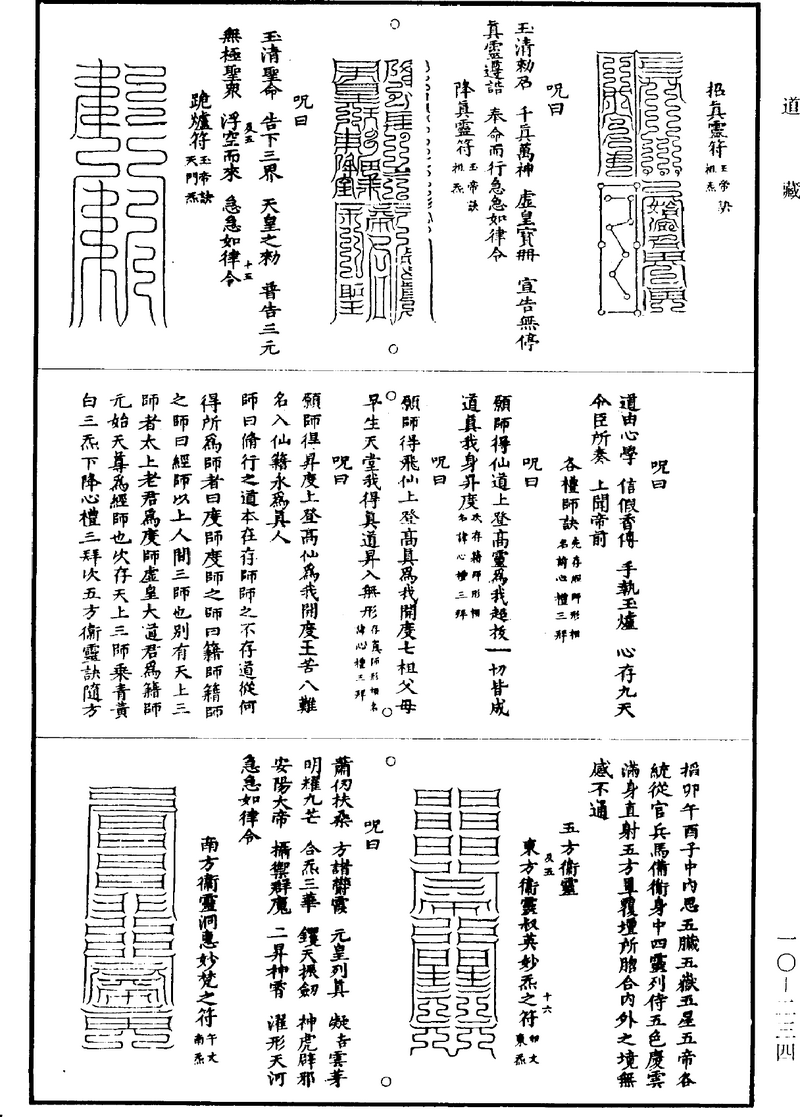 道藏
招真靈符 玉帝訣 祖炁
呪曰
玉清勑召 千兵萬神 虛皇寶冊 宣告無停
真靈遵誥 奉命而行急急如律令
降真靈符 玉帝訣 祖炁
呪曰
玉清聖命 告下三界 天皇之勑 普告三元
無極聖衆 浮空而來 急急如律令
及五 十五
跪爐符 玉帝訣 天門炁
呪曰
道由心學 信假香傳 手執玉爐 心存九天
令臣所奏 上聞帝前
各禮師訣 先存
呪曰
願師得仙道上登高靈爲我超拔一切皆成
道真我身昇度 次存籍師形相名諱心禮三拜
呪曰
願師得飛仙上登高真爲我開度七祖父母
早生天堂我得真道昇入無形 存真師形相名諱心禮三拜
呪曰
願師得昇度上登高仙爲我開度王苦八難
名入仙籍永爲真人
師曰脩行之道本在存師師之不存道從何
得所爲師者曰度師度師之師曰籍師籍師
之師曰經師以上人間三師也別有天上三
師者太上老君爲度師虛皇大道君爲籍師
元始天尊爲經師也次存天上三師乘青黃
白三炁下降心禮三拜次五方衛靈訣隨方
招卯午酉子中內思五臟五嶽五星五帝各
統從官兵馬備衛身中四靈列侍五色慶雲
滿身直射五方罩覆壇所脗合內外之境無
感不通
五方衛靈
及五 十六
東方衛靈叔英妙炁之符 卯文 東炁
呪曰
蕭仞扶桑 方諸鬱霞 元皇列真 凝吉雲芽
明耀九芒 合炁三華 鑊天振劒 神虎辟邪
安陽大帝 攝禦群魔 二昇神霄 濯形天河
急急如律令
南方衛靈洞惠妙梵之符 午文 南炁
一〇—二三四